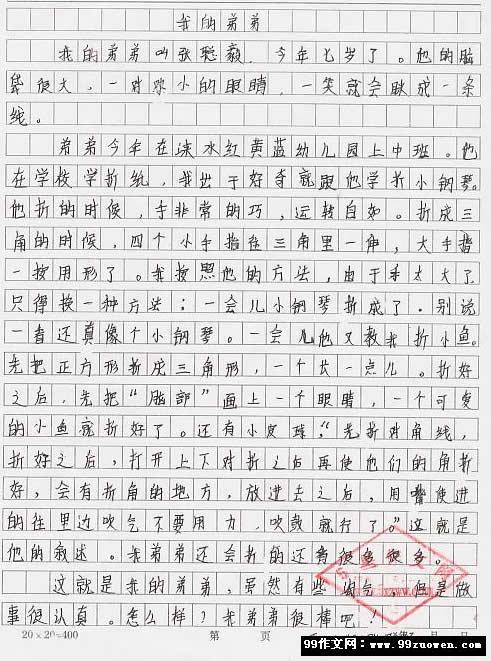 我的弟弟
我的弟弟叫张聪颖,今年七岁了。他的脑
袋很大,一对水小的眼睛,一笑就会眯成一条
线。
弟弟今年在淡水红黄蓝幼儿园上中班。他
在学校学折纸,我出于好奇就跟他学折小钢琴。
他折的时候,手非常的巧,运转自如。折成三
角的时候,四个小手指在三角里一伸,大手指
一按用形了。我按照他的方法,由于手太大了
只得换一种方法;一会儿小钢琴折成了。别说
一看还真像个小钢琴。一会儿他又教我折小鱼。
先把正方形折成三角形,一个长一点儿。折好
之后,先把“脑部”画上一个眼睛,一个可爱
的小鱼就折好了。还有小皮球,“先折对角线,
折好之后,打开上下对折之后再使他们的角折
好,会有折角的地方,放进去之后,用嘴使进
的往里边吹气不要用力,吹鼓就行了。”这就是
他的叙述。我弟弟还会折的还有很多很多。
这就是我的弟弟,虽然有些 气,但是做
事很认真。怎么样?我弟弟很棒吧!
20×20=400 第 页
99作文网:www.99zuowen.com